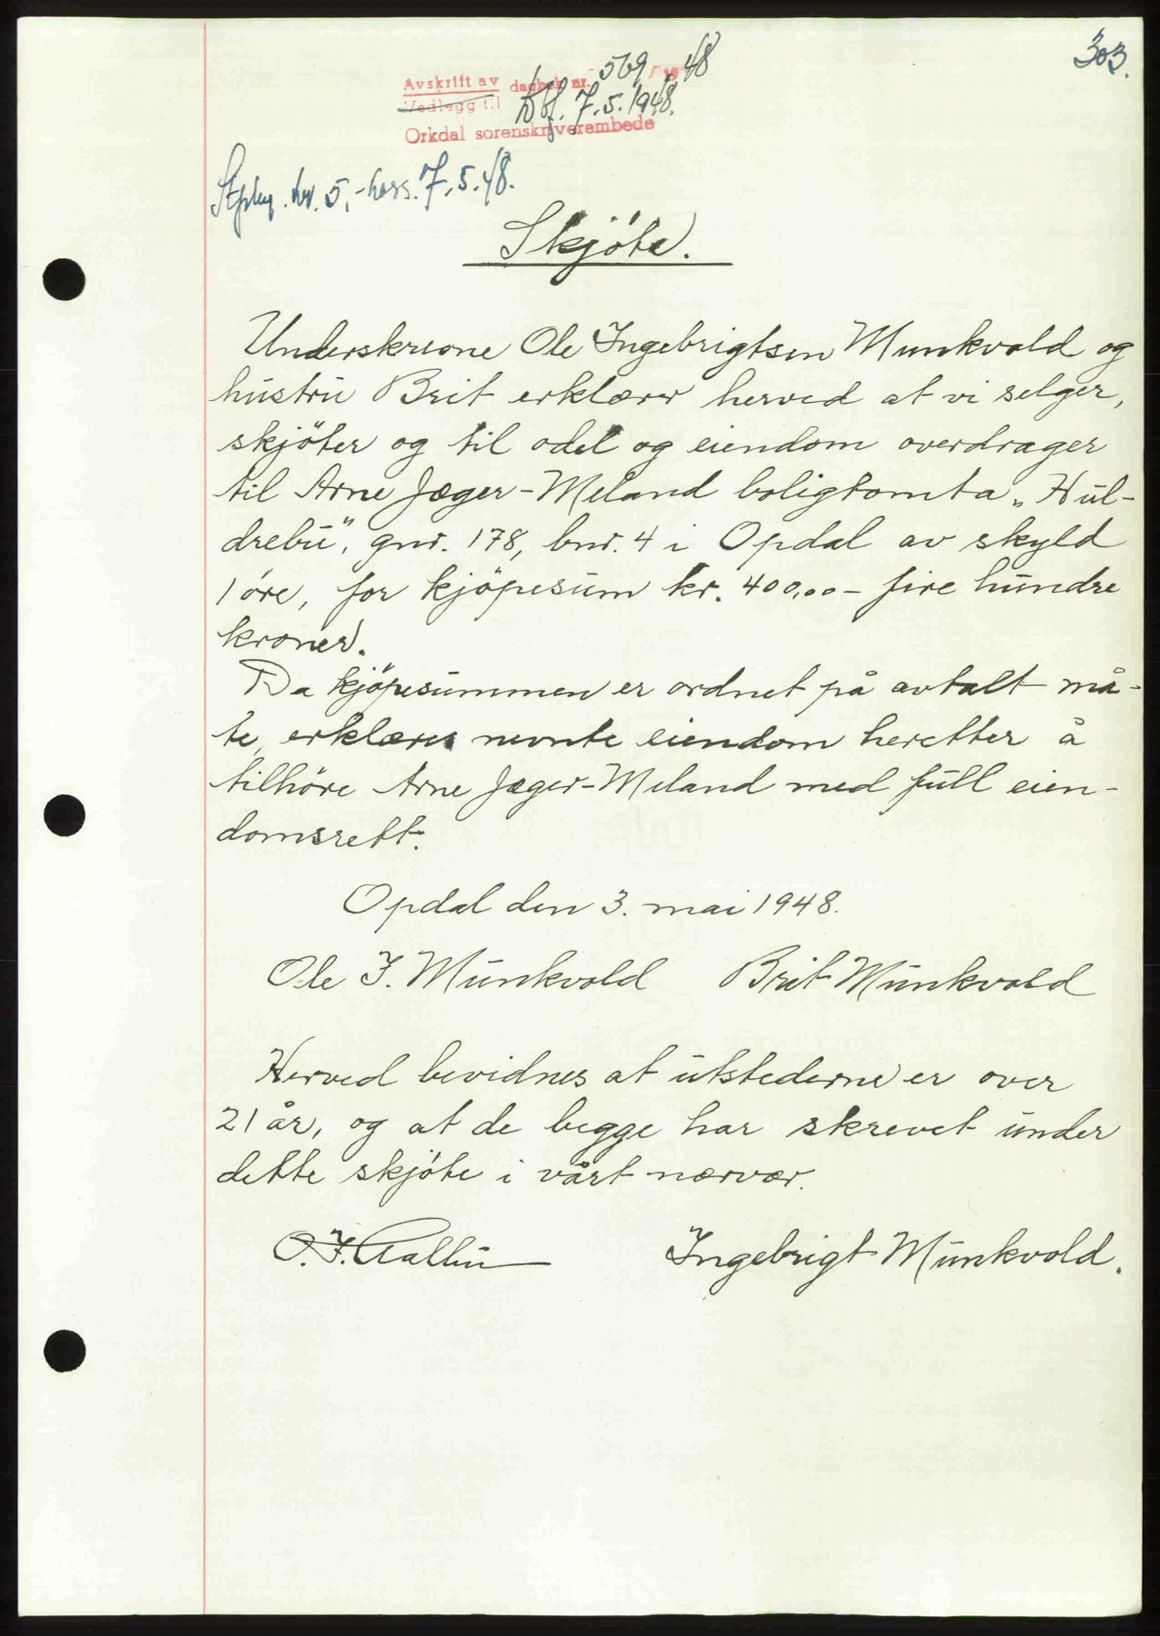 303.
Avskrift av dagbok nr. 569/1948
Vedlegg til Tgl. 7.5.1948.
Orkdal sorenskriverembede
Stpleg. kr. 5,- kass. 7.5.48.
Skjöte.
Underskrevne Ole Ingebrigtsen Munkvold og
hustru Brit erklærer herved at vi selger,
skjöter og til odel og eiendom overdrager
til Arne Jæger-Meland boligtomta „Hul-
drebu", gnr. 178, bnr. 4 i Opdal av skyld
1 öre, for kjöpesum kr. 400,00 - fire hundre
kroner.
Da kjöpesummen er ordnet på avtalt må-
te, erklæres nevnte eiendom heretter å
tilhöre Arne Jæger-Meland med full eien-
domsrett.
Opdal den 3. mai 1948.
Ole I. Munkvold Brit Munkvold
Herved bevidnes at utstederne er over
21 år, og at de begge har skrevet under
dette skjöte i vårt nærvær.
O. J. Aalbu Ingebrigt Munkvold.